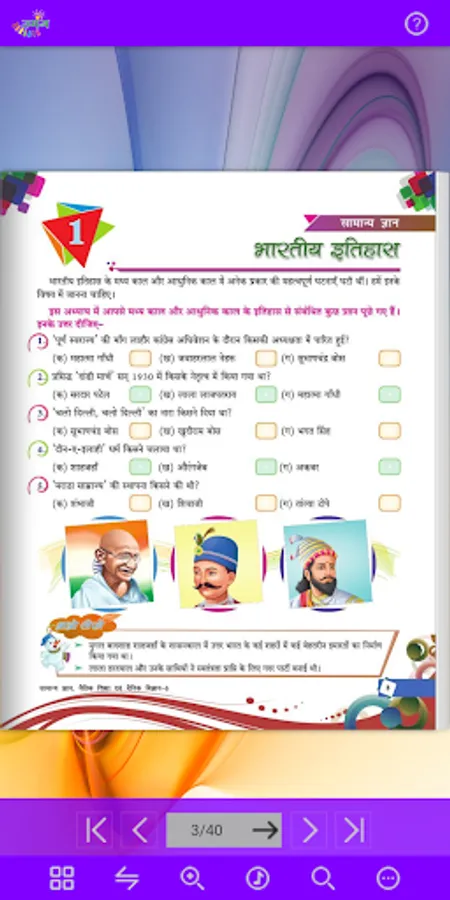 1
सामान्य ज्ञान
भारतीय इतिहास
भारतीय इतिहास के मध्य काल और आधुनिक काल में अनेक प्रकार की महत्वपूर्ण घटनाएँ घटी थीं। हमें इनके
विषय में जानना चाहिए।
इस अध्याय में आपसे मध्य काल और आधुनिक काल के इतिहास से संबंधित कुछ प्रश्न पूछे गए हैं।
इनके उत्तर दीजिए-
1. 'पूर्ण स्वराज्य' की माँग लाहौर कांग्रेस अधिवेशन के दौरान किसकी अध्यक्षता में पारित हुई?
(क) महात्मा गाँधी (ख) जवाहरलाल नेहरू (ग) सुभाषचंद्र बोस
2. प्रसिद्ध 'दांडी मार्च' सन् 1930 में किसके नेतृत्व में किया गया था?
(क) सरदार पटेल (ख) लाला लाजपतराय (ग) महात्मा गाँधी
3. 'चलो दिल्ली, चलो दिल्ली' का नारा किसने दिया था?
(क) सुभाषचंद्र बोस (ख) खुदीराम बोस (ग) भगत सिंह
4. 'दीन-ए-इलाही' धर्म किसने चलाया था?
(क) शाहजहाँ (ख) औरंगजेब (ग) अकबर
5. 'मराठा साम्राज्य' की स्थापना किसने की थी?
(क) शंभाजी (ख) शिवाजी (ग) तांत्या टोपे
मुगल बादशाह शाहजहाँ के शासनकाल में उत्तर भारत के कई शहरों में कई बेहतरीन इमारतों का निर्माण
किया गया था।
लाला हरदयाल और उनके साथियों ने स्वतंत्रता प्राप्ति के लिए गदर पार्टी बनाई थी।
सामान्य ज्ञान, नैतिक शिक्षा एवं दैनिक विज्ञान-8
3/40